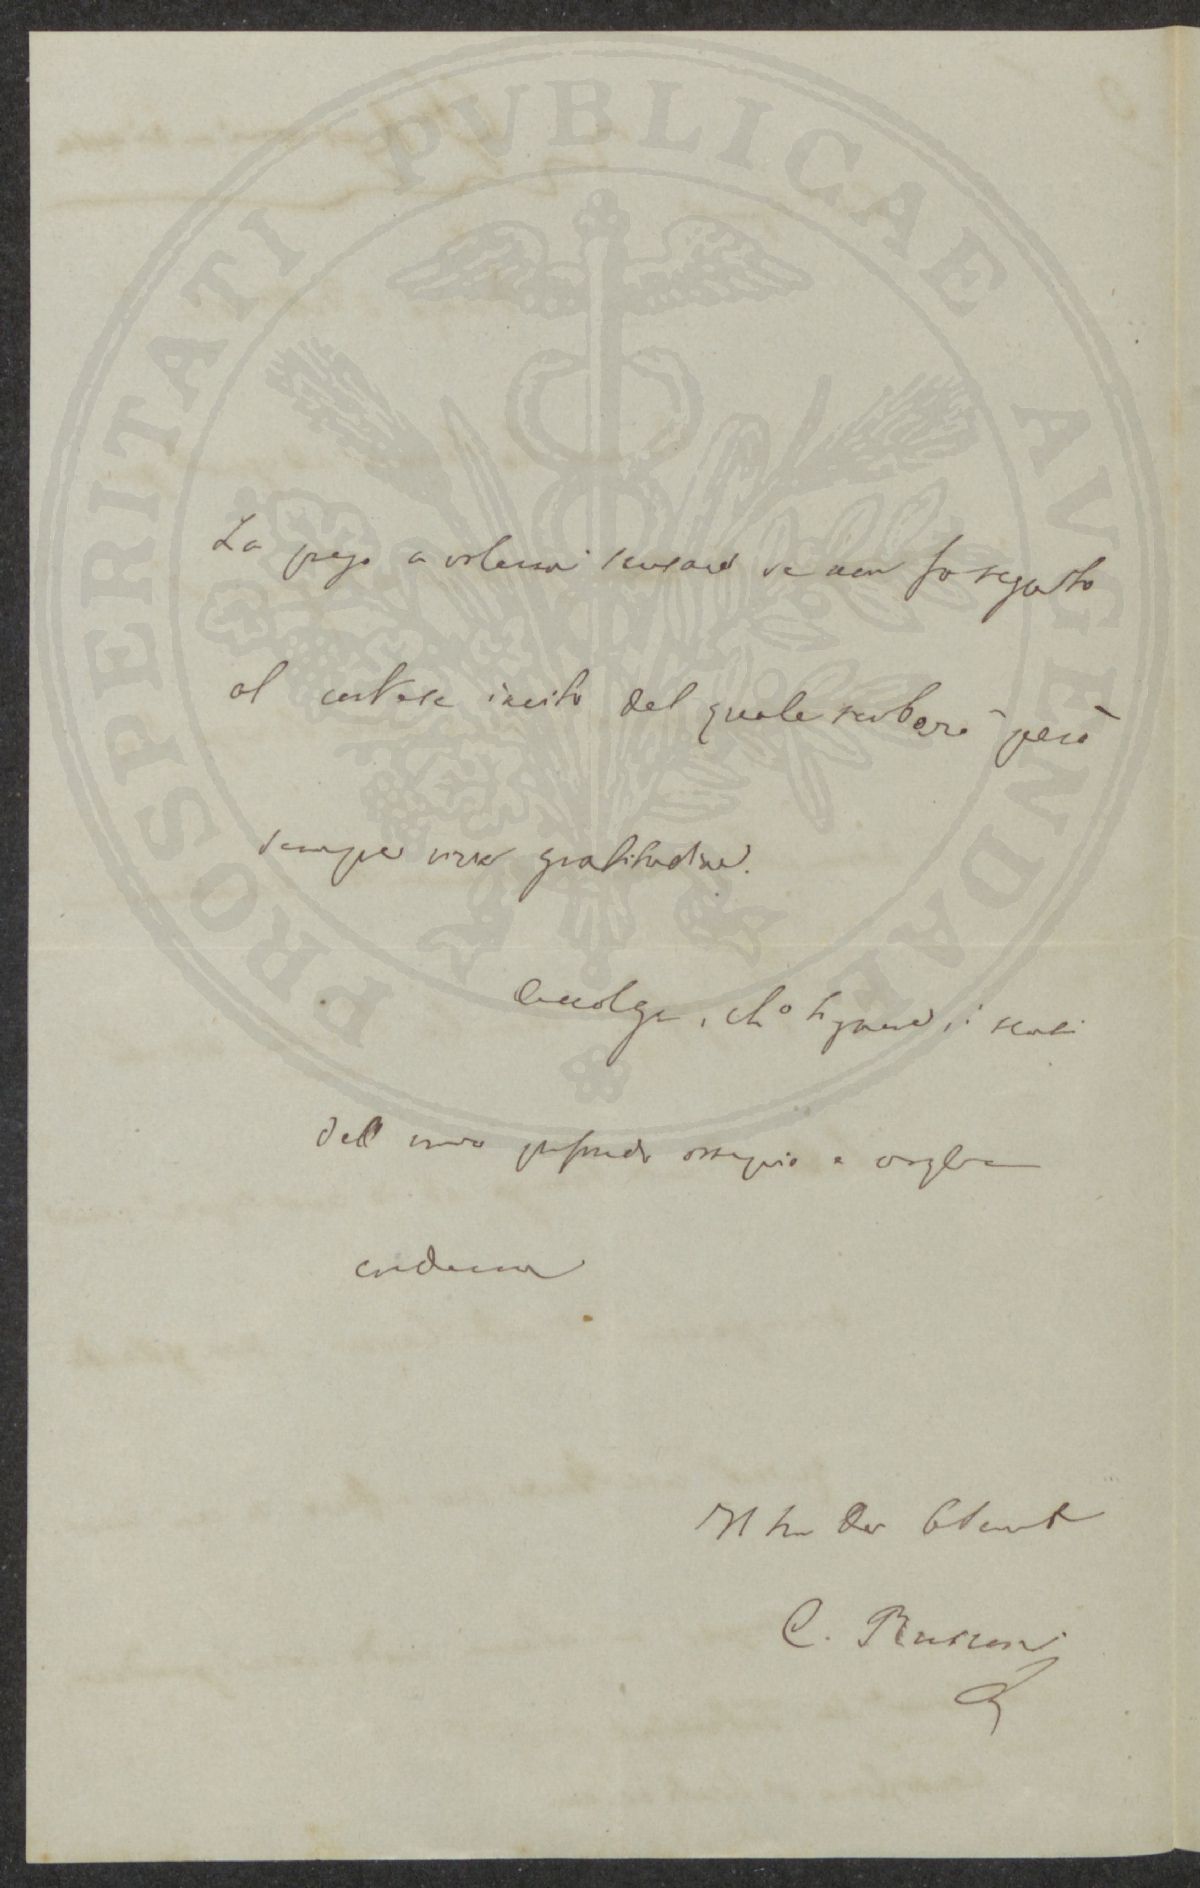 PROSPERITATI PVBLICAE AVGENDAE
La prego a volermi scusare se non fo seguito
al cortese invito del quale serberò però
sempre viva gratitudine.
Accolga, ch.o Signore, i sensi
dell mio profondo ossequio e voglia
credermi
C. Bussoni